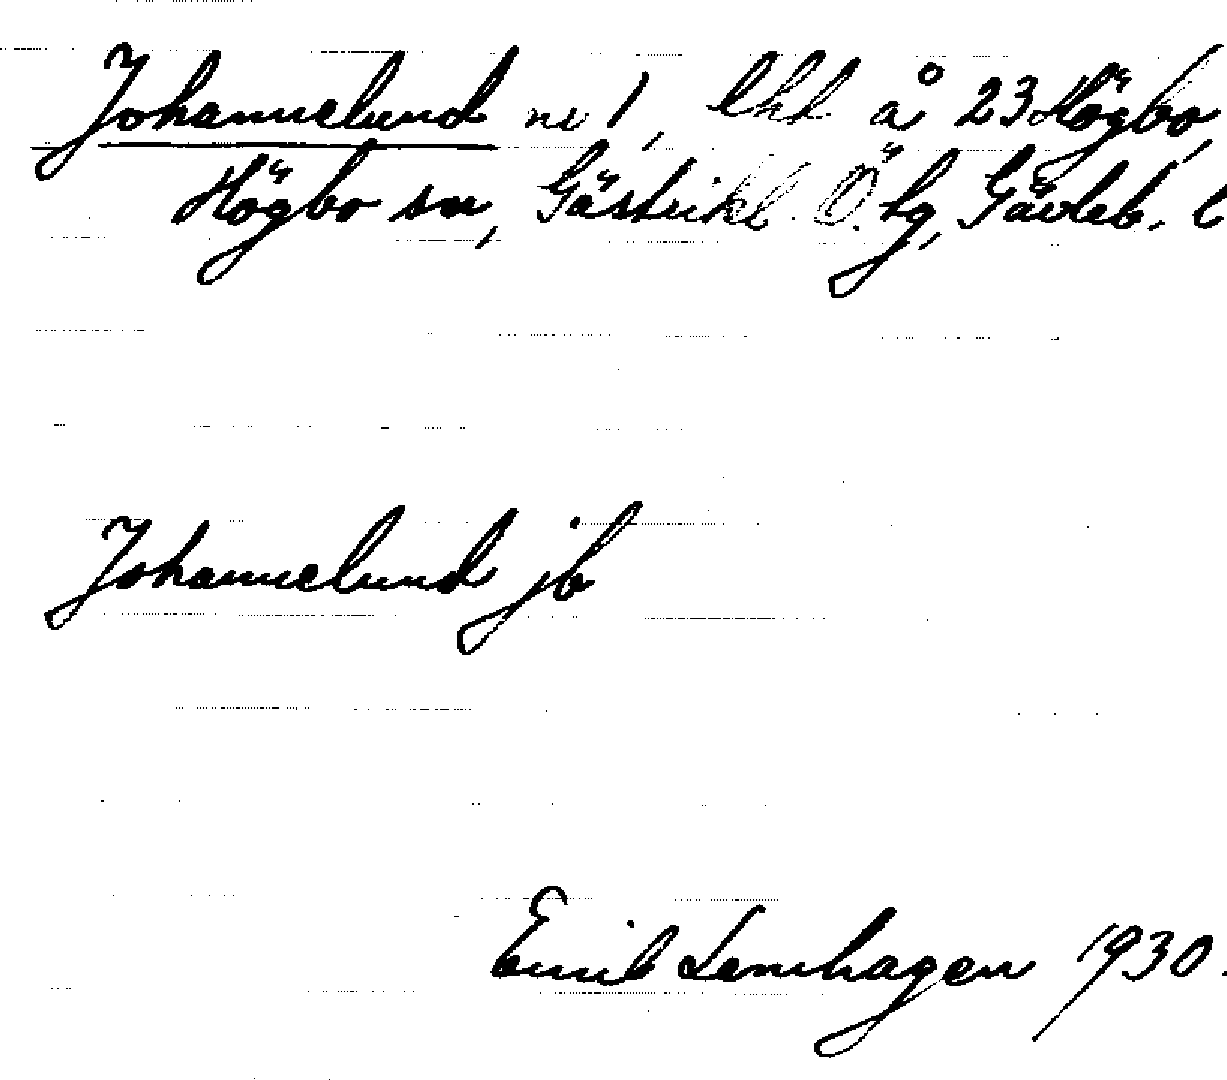 Johannelund nr 1, lht å 23 Högbo,
Högbo sn, Gästrikl. Ö. tg, Gävleb. l
Johannelund jb
Emil Lennhagen 1930.